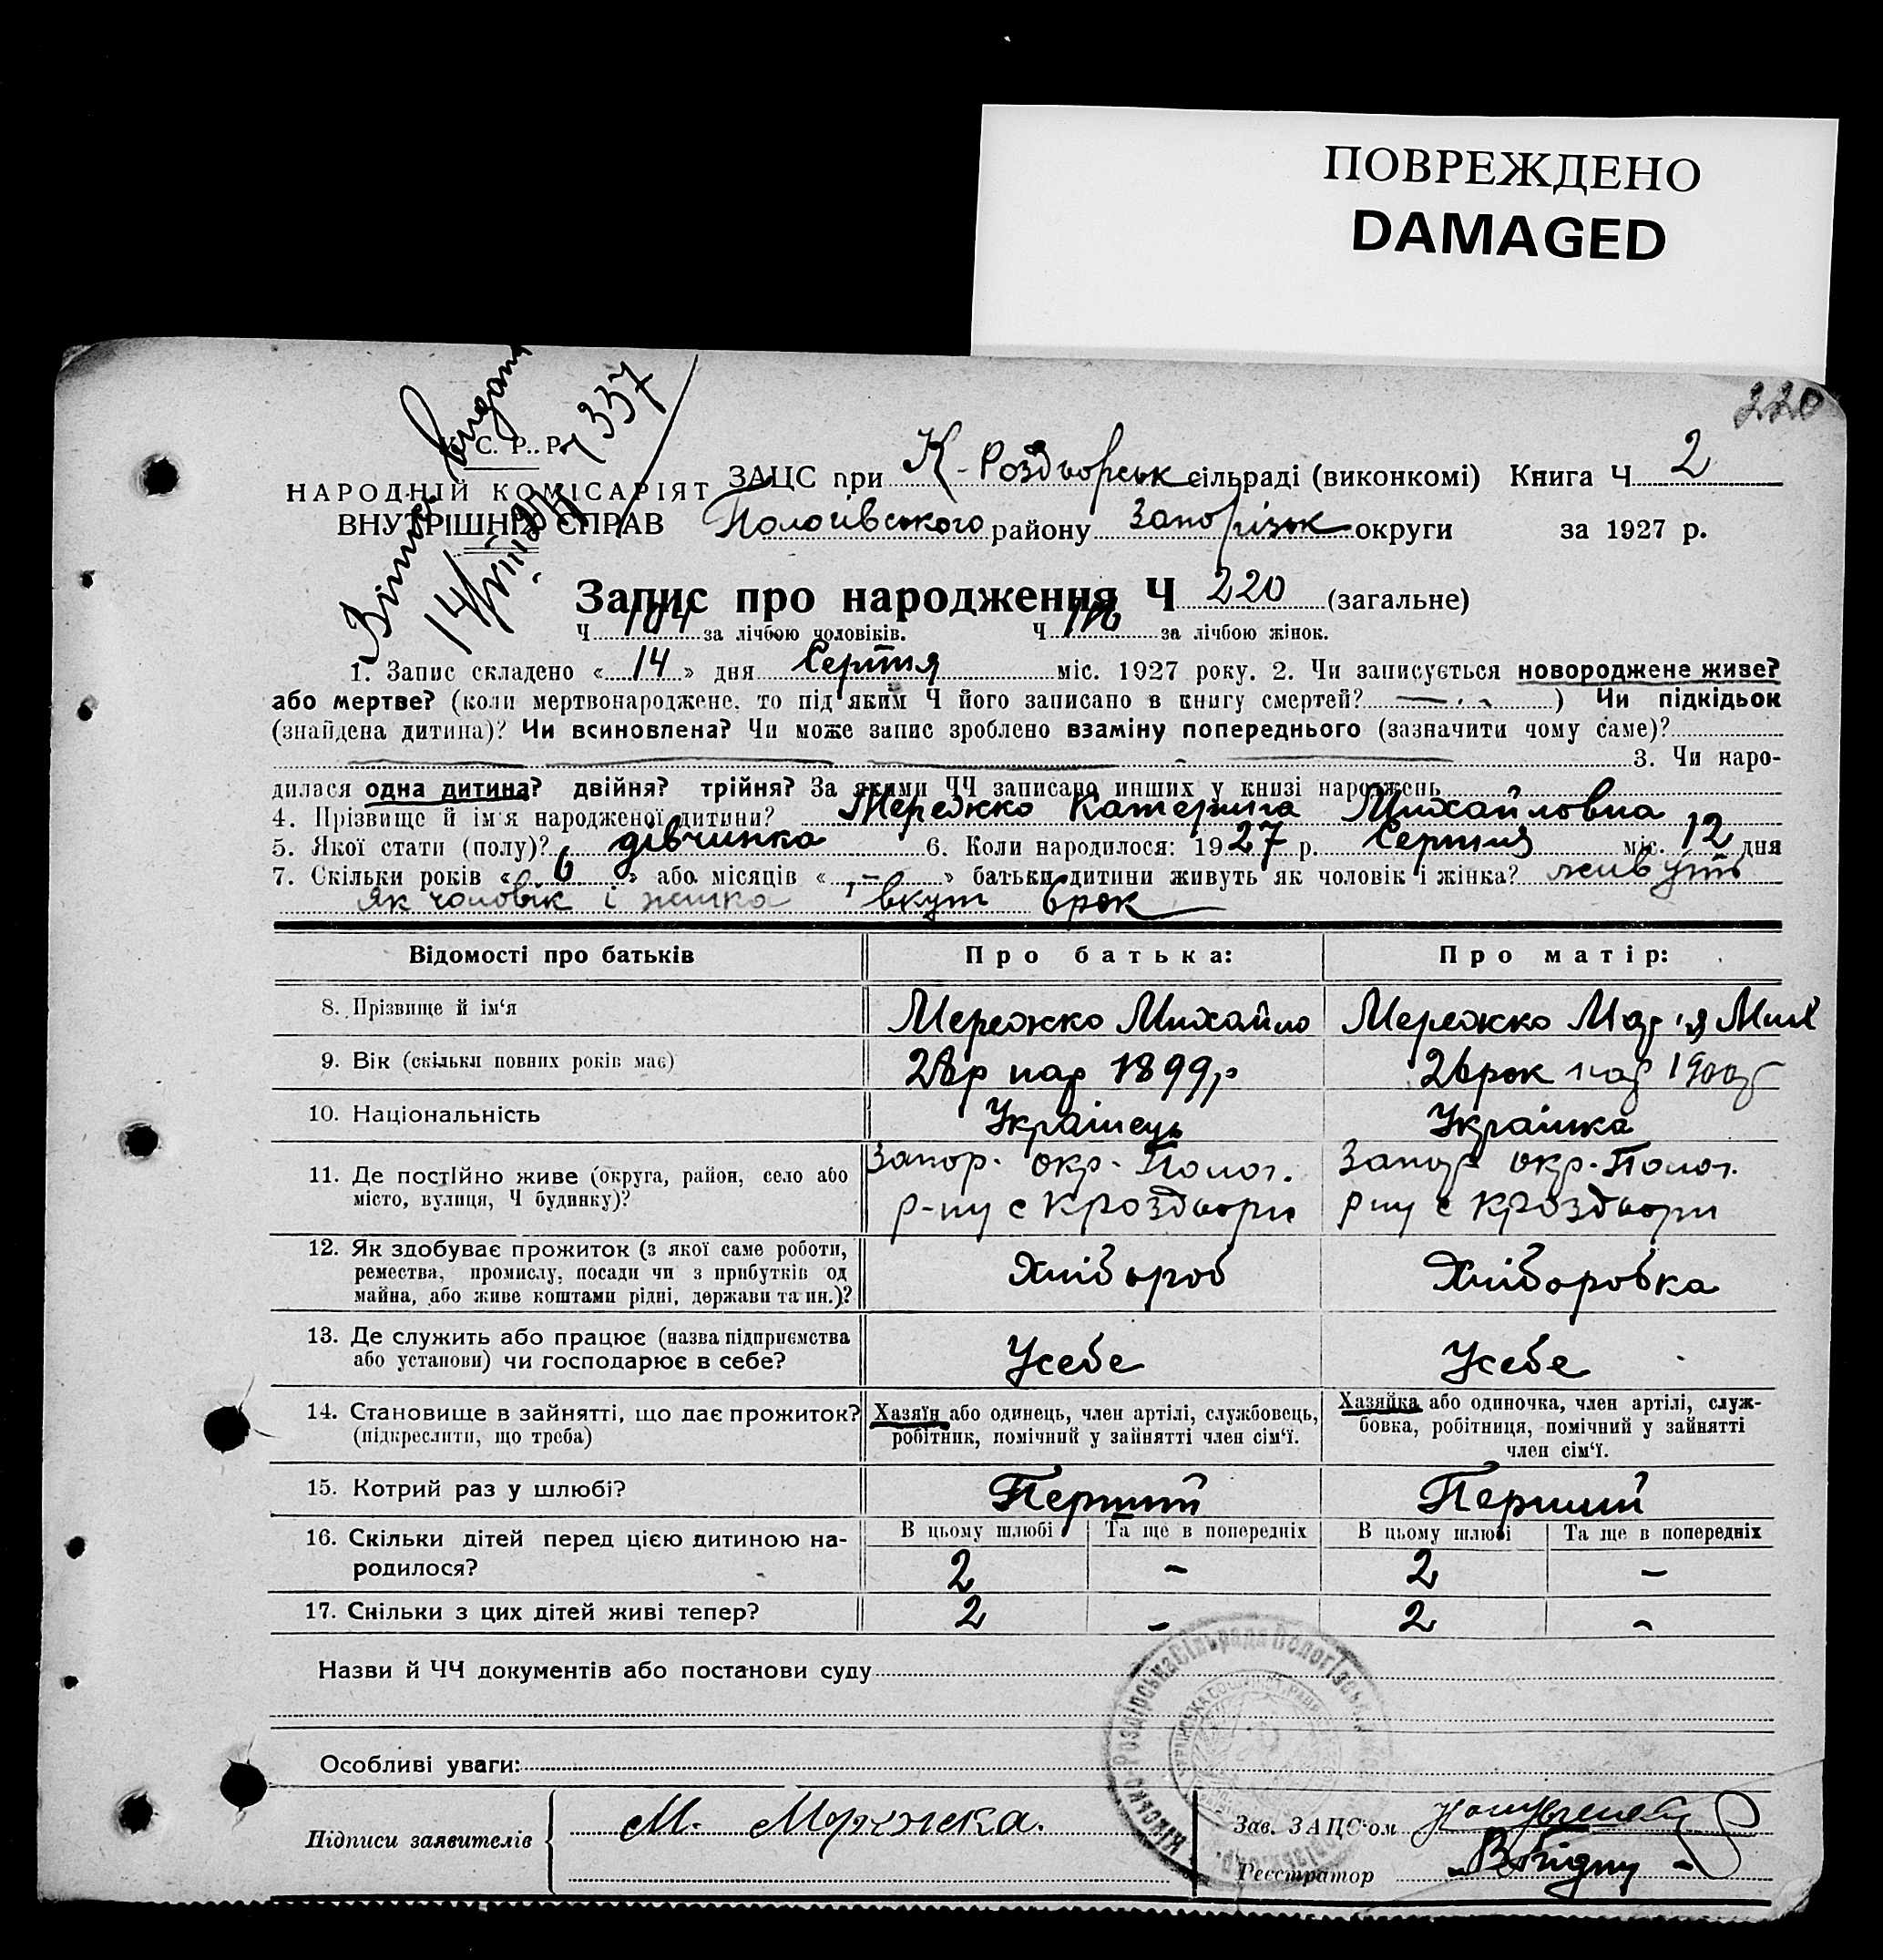 ПОВРЕЖДЕНО
DAMAGED
220
Витяг видано
14/VIII 27 337
У. С. Р. Р.
НАРОДНІЙ КОМІСАРІЯТ
ВНУТРІШНІХ СПРАВ
ЗАЦС при К-Роздьорськ сільраді (виконкомі) Книга Ч 2
Пологівського району Запорізьк округи за 1927 р.
Запис про народження Ч 220 (загальне)
Ч 104 за лічбою чоловіків. Ч 116 за лічбою жінок.
1. Запис складено «14» дня Серпня міс. 1927 року. 2. Чи записується новороджене живе?
або мертве? (коли мертвонароджене, то під яким Ч його записано в книгу смертей? ) Чи підкідьок
(знайдена дитина)? Чи всиновлена? Чи може запис зроблено взаміну попереднього (зазначити чому саме)?
3. Чи наро-
дилася одна дитина? двійня? трійня? За якими ЧЧ записано инших у книзі народжень
4. Прізвище й ім'я народженої дитини? Мережко Катерина Михайловна
5. Якої стати (полу)? дівчинка 6. Коли народилося: 1927 р. Серпня міс. 12 дня
7. Скільки років «6» або місяців «–» батьки дитини живуть як чоловік і жінка? живуть
як чоловік і жинка вкуп 6 рок
Відомості про батьків Про батька: Про матір:
8. Прізвище й ім'я Мережко Михайло Мережко Мар'я Мих
9. Вік (скільки повних років має) 28 р нар 1899 р 26 рок нар 1900 р
10. Національність Українець Українка
11. Де постійно живе (округа, район, село або місто, вулиця, Ч будинку)? Запор. окр. Полог. р-ну с Кроздьори Запор окр. Полог. р ну с Кроздьори
12. Як здобуває прожиток (з якої саме роботи, ремества, промислу, посади чи з прибутків од майна, або живе коштами рідні, держави та ин.)? Хлібороб Хліборобка
13. Де служить або працює (назва підприємства або установи) чи господарює в себе? Усебе Усебе
14. Становище в зайнятті, що дає прожиток? (підкреслити, що треба) Хазяїн або одинець, член артілі, службовець, робітник, помічний у зайнятті член сім'ї. Хазяйка або одиночка, член артілі, служ-бовка, робітниця, помічний у зайнятті член сім'ї.
15. Котрий раз у шлюбі? Перший Перший
16. Скільки дітей перед цією дитиною на-родилося? В цьому шлюбі 2 Та ще в попередніх – В цьому шлюбі 2 Та ще в попередніх –
17. Скільки з цих дітей живі тепер? 2 – 2 –
Назви й ЧЧ документів або постанови суду
Особливі уваги:
Підписи заявителів М. Мережка. Зав. ЗАЦС'ом
Реєстратор